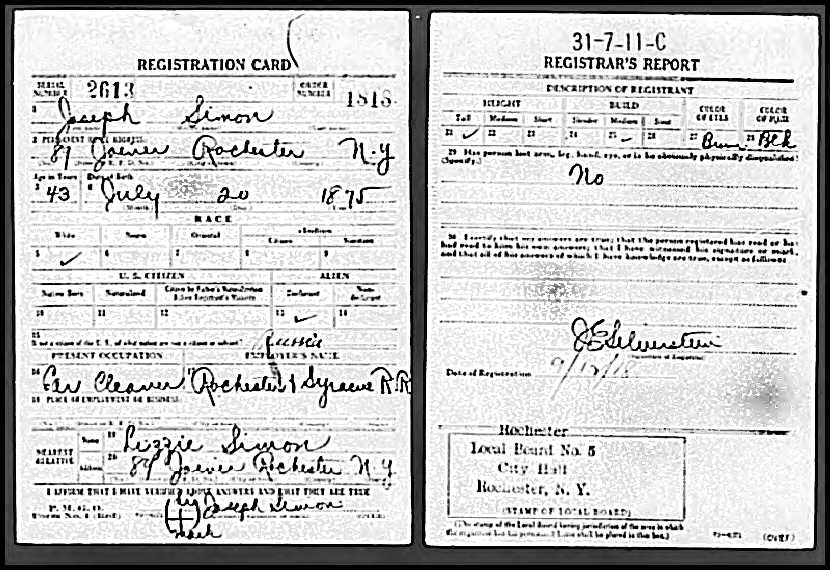 REGISTRATION CARD
SERIAL NUMBER 2613 ORDER NUMBER 1818
1 Joseph Simon
2 PERMANENT HOME ADDRESS
Rochester N.Y
Age in Years Date of Birth
3 43 4 July 20 1875
(Month)
RACE
White Negro Oriental Indian
Citizen Noncitizen
5 ✓ 6 7 8 9
U. S. CITIZEN ALIEN
Native Born Naturalized Citizen by Father's Naturalization Before Registrant's Majority Declarant Non-declarant
10 11 12 13 ✓ 14
15
If not a citizen of the U. S., of what nation are you a citizen or subject? Russia
PRESENT OCCUPATION EMPLOYER'S NAME
16 Car Cleaner 17 Rochester & Syracuse R.R
18 PLACE OF EMPLOYMENT OR BUSINESS
NEAREST RELATIVE Name 19 Lizzie Simon
Address 20 Rochester N.Y.
I AFFIRM THAT I HAVE VERIFIED ABOVE ANSWERS AND THAT THEY ARE TRUE
P. M. G. O.
Form No. 1 (Red) Joseph Simon
mark
31-7-11-C
REGISTRAR'S REPORT
DESCRIPTION OF REGISTRANT
HEIGHT BUILD COLOR OF EYES COLOR OF HAIR
Tall Medium Short Slender Medium Stout
21 ✓ 22 23 24 25 - 26 27 28 Blk
29 Has person lost arm, leg, hand, eye, or is he obviously physically disqualified?
(Specify.)
No
30 I certify that my answers are true; that the person registered has read or has
had read to him his own answers; that I have witnessed his signature or mark,
and that all of his answers of which I have knowledge are true, except as follows:
J E Silverstein
(Signature of Registrar)
Date of Registration 9/12/18
Rochester
Local Board No. 5
City Hall
Rochester, N. Y.
(STAMP OF LOCAL BOARD)
(The stamp of the Local Board having jurisdiction of the area in which
the registrant has his permanent home shall be placed in this box.)
(OVER)